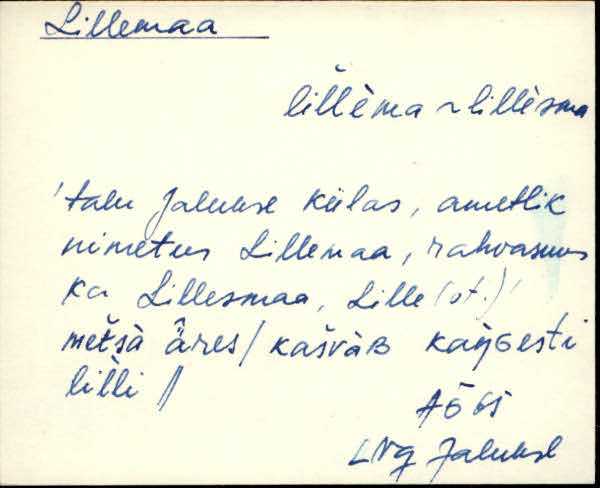 Lillemaa
lĭl̆lèma ~ lillèsma
'talu Jalukse külas, ametlik
nimetus Lillemaa, rahvasuus
ka Lillesmaa, Lille (ot.)'
mèt̆sà ä̂res / kašvàʙ kaŋɢesti
lilli //
AÕ 65
LNg Jalukse